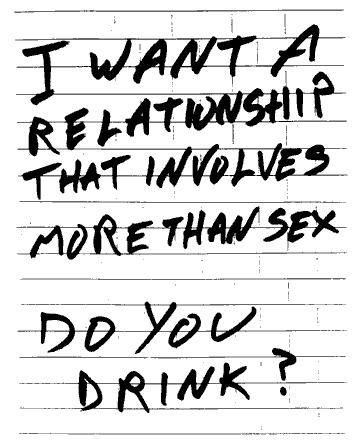 I WANT A
RELATIONSHIP
THAT INVOLVES
MORE THAN SEX
DO YOU
DRINK?